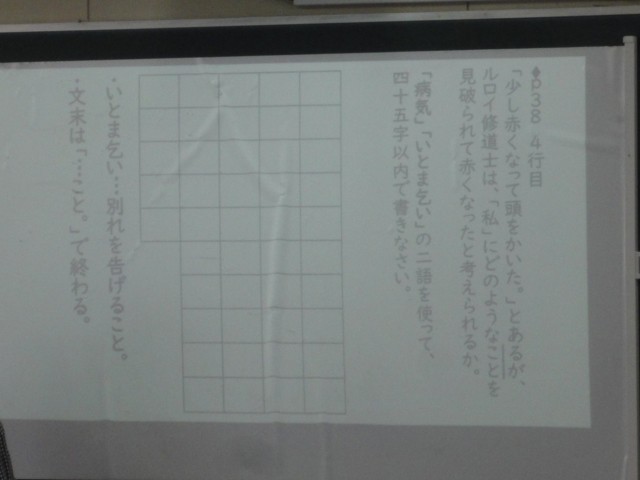 ◆p38 4行目
「少し赤くなって頭をかいた。」とあるが、
ルロイ修道士は、「私」にどのようなことを
見破られて赤くなったと考えられるか。
「病気」「いとま乞い」の二語を使って、
四十五字以内で書きなさい。
・いとま乞い…別れを告げること。
・文末は「…こと。」で終わる。